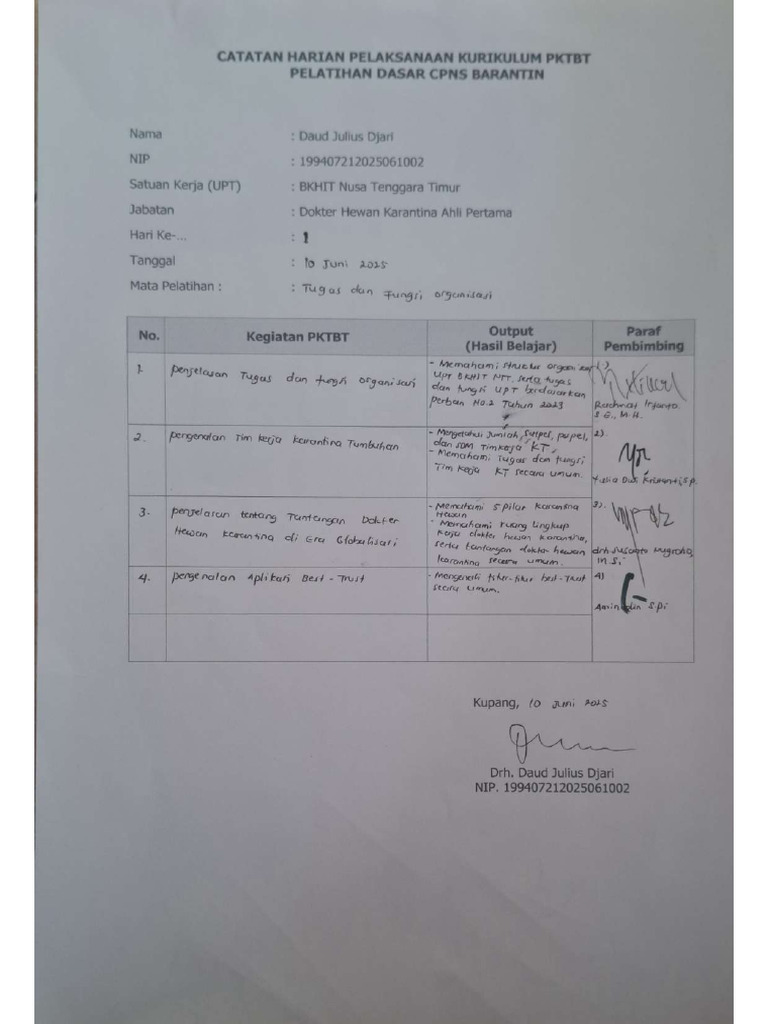 CATATAN HARIAN PELAKSANAAN KURIKULUM PKTBT
PELATIHAN DASAR CPNS BARANTIN
Nama : Daud Julius Djari
NIP : 199407212025061002
Satuan Kerja (UPT) : BKHIT Nusa Tenggara Timur
Jabatan : Dokter Hewan Karantina Ahli Pertama
Hari Ke-... : 1
Tanggal : 10 Juni 2025
Mata Pelatihan : : Tugas dan Fungsi organisasi
No. Kegiatan PKTBT Output (Hasil Belajar) Paraf Pembimbing
1. penjelasan Tugas dan fungsi organisasi
- Memahami struktur organisasi
UPT BKHIT NTT, serta tugas
dan fungsi UPT berdasarkan
perban No.2 Tahun 2023
1)
Rachmat
S.E., M.H.
2. pengenalan Tim kerja karantina Tumbuhan
- Mengetahui Jumlah, Satpel,
dan SDM Timkerja KT,
- Memahami Tugas dan fungsi
Tim Kerja KT secara umum.
2).
Yulia Dwi Kristanti, S.P.
3. penjelasan tentang Tantangan Dokter
Hewan karantina di Era Globalisasi
- Memahami 5 pilar karantina
Hewan
- Memahami ruang lingkup
kerja dokter hewan karantina,
serta tantangan dokter hewan
karantina secara umum.
3).
drh. Nugroho,
M.Si
4. pengenalan Aplikasi Best-Trust
- Mengenali fitur-fitur best-Trust
secara umum.
4)
Aminudin S.Pi
Kupang, 10 Juni 2025
Drh. Daud Julius Djari
NIP. 199407212025061002